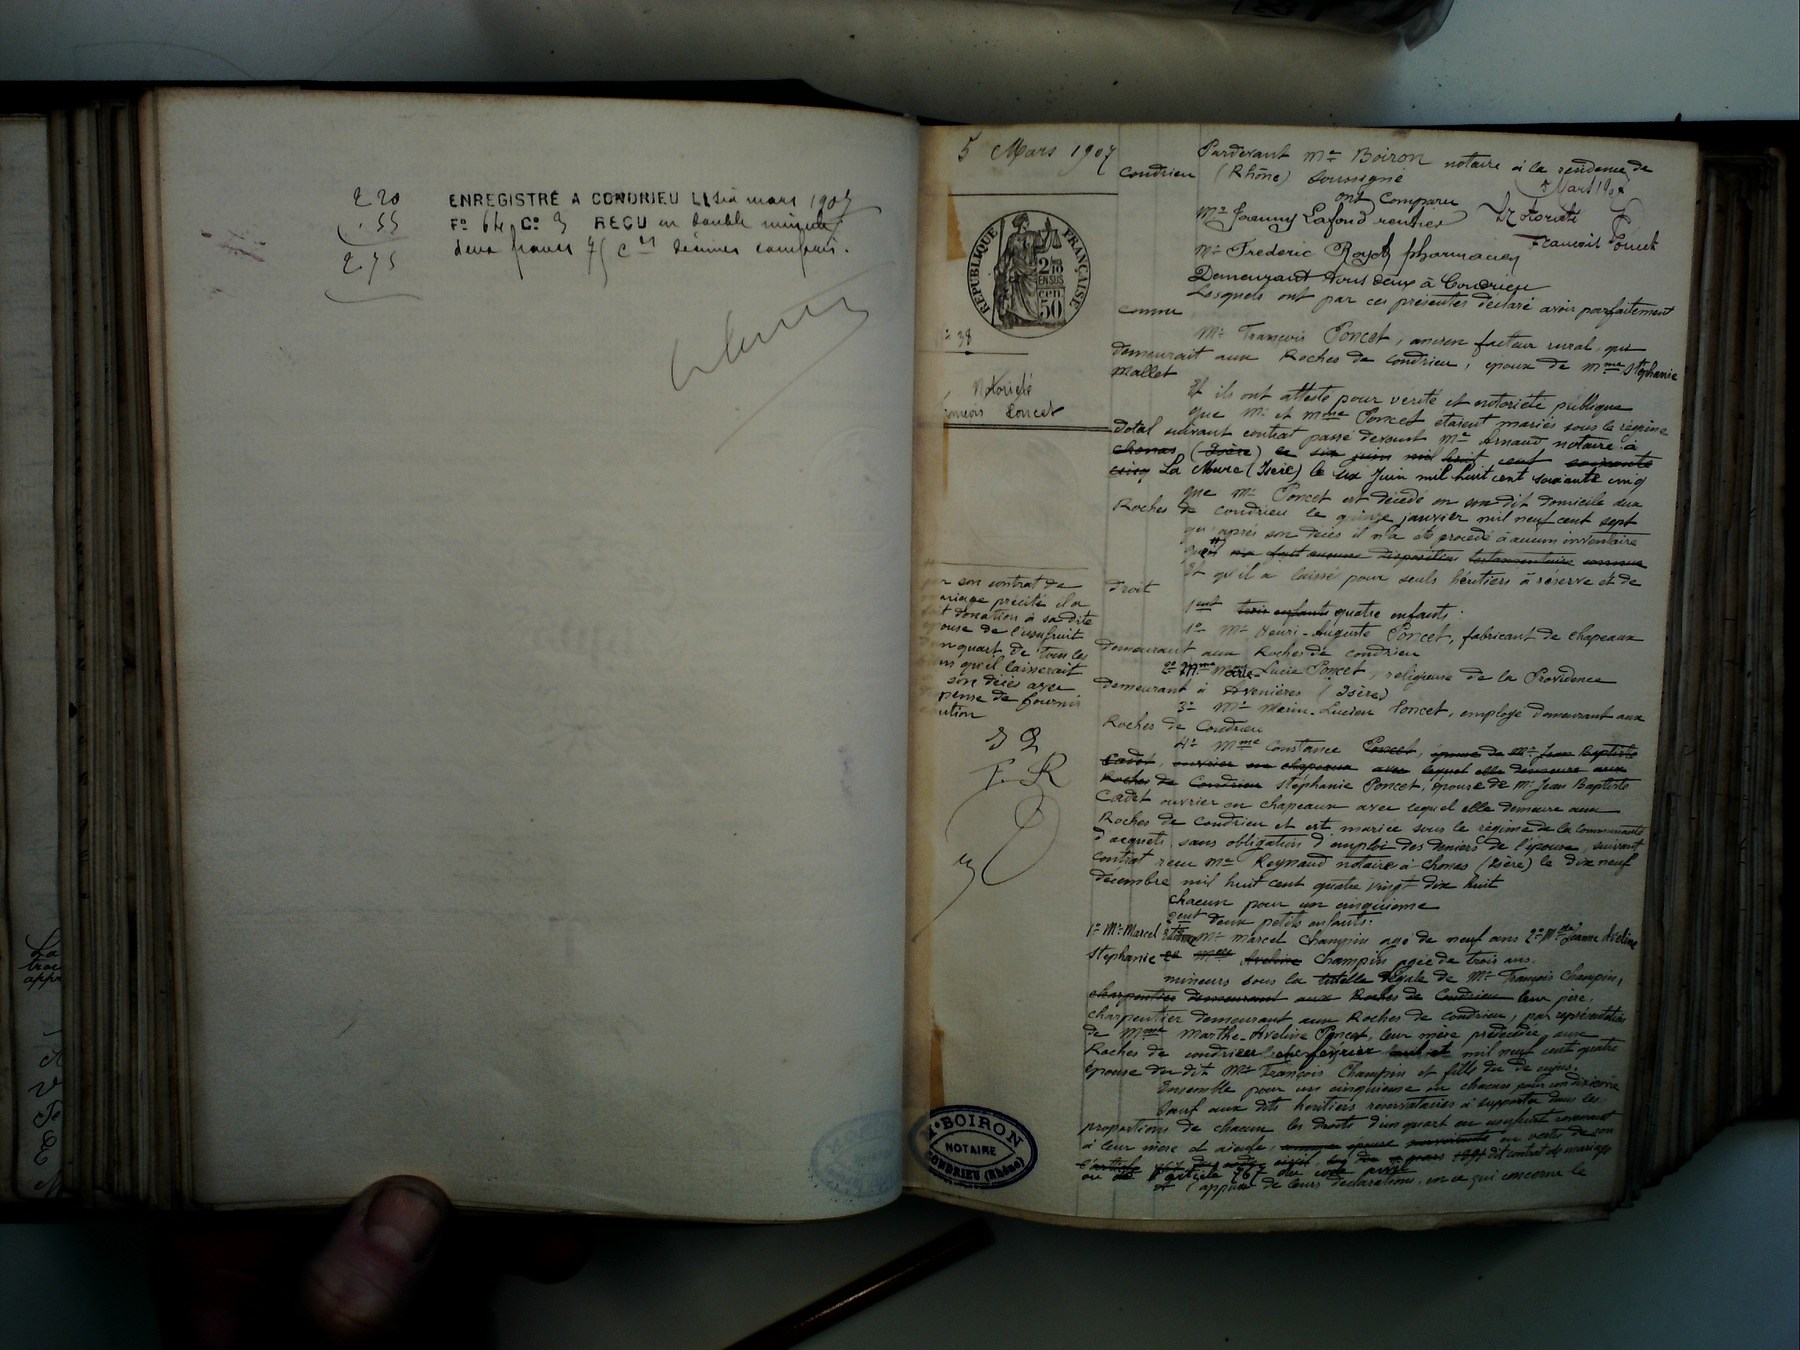 2 20
. 55
2.75
ENREGISTRÉ A CONDRIEU LE six mars 1907
Fº 64 Cº 3 REÇU en double minute
deux francs 75 cms décimes compris.
5 Mars 1907
RÉPUBLIQUE FRANÇAISE
2/10
EN SUS
50
38
Notoriété
Poncet
son contrat de
mariage précité il a
fait donation à sa dite
épouse de l'usufruit
d'un quart de tous les
biens qu'il laisserait
son décès avec
de fournir
caution
F. R
Mᵉ BOIRON
NOTAIRE
CONDRIEU (Rhône)
Pardevant Me Boiron notaire à la résidence de
Condrieu (Rhône) soussigné
Mars 1907
ont Comparu
Notoriété
Mr Joanny Lafond rentier
François Poncet
Mr Frédéric Roych pharmacien
Demeurant tous deux à Condrieu
Lesquels ont par ces présentes déclaré avoir parfaitement
connu
Mr François Poncet, ancien facteur rural, qui
demeurait aux Roches de Condrieu, époux de Mme Stéphanie
Mallet
Et ils ont attesté pour vérité et notoriété publique
que Mr et Mme Poncet étaient mariés sous le régime
dotal suivant contrat passé devant Me Arnaud notaire à
Chonas (Isère) le six juin mil huit cent soixante
cinq La Mure (Isère) le six Juin mil huit cent soixante cinq
que Mr Poncet est décédé en son dit domicile aux
Roches de Condrieu le quinze janvier mil neuf cent sept
qu'après son décès il n'a été procédé à aucun inventaire
qu'il n'a fait aucune disposition testamentaire connue
Et qu'il a laissé pour seuls héritiers à réserve et de
droit
1ent trois enfants quatre enfants:
1º Mr Henri-Auguste Poncet, fabricant de chapeaux
demeurant aux Roches de Condrieu
2º Mme Marie-Lucie Poncet, religieuse de la Providence
demeurant à Avenières (Isère)
3º Mr Marin-Lucien Poncet, employé demeurant aux
Roches de Condrieu
4º Mme Constance Poncet, épouse de Mr Jean Baptiste
Cadet, ouvrier en chapeaux avec lequel elle demeure aux
Roches de Condrieu Stéphanie Poncet, épouse de Mr Jean Baptiste
Cadet ouvrier en chapeaux avec lequel elle demeure aux
Roches de Condrieu et est mariée sous le régime de la communauté
d'acquêts sans obligation d'emploi des deniers de l'épouse, suivant
contrat reçu Me Reynaud notaire à Chonas (Isère) le dix neuf
décembre mil huit cent quatre vingt dix huit
chacun pour un cinquième
2ent deux petits enfants:
1º Mr Marcel Mr Marcel Champin âgé de neuf ans 2º Mlle Jeanne Aveline
Stéphanie Aveline Champin âgée de trois ans.
mineurs sous la tutelle légale de Mr François Champin,
charpentier demeurant aux Roches de Condrieu leur père,
charpentier demeurant aux Roches de Condrieu, par représentation
de Mme Marthe-Aveline Poncet, leur mère prédécédée aux
Roches de Condrieu février mil neuf cent quatre
épouse du dit Mr François Champin et fille du de cujus.
Ensemble pour un cinquième ou chacun pour un dixième
Sauf aux dits héritiers réservataires à supporter dans les
proportions de chacun les droits d'un quart en usufruit revenant
à leur mère et aïeule, épouse survivante en vertu de son
dit contrat de mariage
ou de l'article 767 du code civil
A l'appui de leurs déclarations, en ce qui concerne le